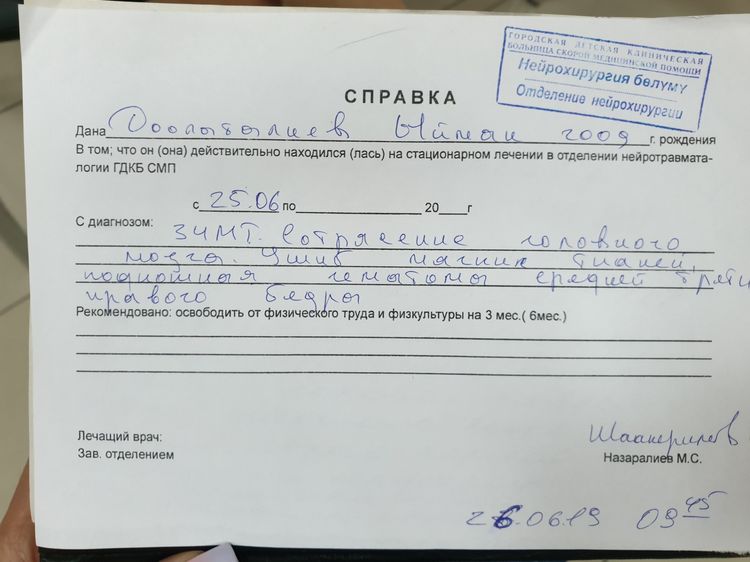 ГОРОДСКАЯ ДЕТСКАЯ КЛИНИЧЕСКАЯ
БОЛЬНИЦА СКОРОЙ МЕДИЦИНСКОЙ ПОМОЩИ
Нейрохирургия бөлүмү
Отделение нейрохирургии
СПРАВКА
Дана Доолаталиев Ыйман 2009 г. рождения
В том; что он (она) действительно находился (лась) на стационарном лечении в отделении нейротравмата-
логии ГДКБ СМП
с 25.06 по 20 г
С диагнозом: ЗЧМТ. Сотрясение головного
мозга. Ушиб мягких тканей,
подкожная гематомы средней трети
правого бедра
Рекомендовано: освободить от физического труда и физкультуры на 3 мес.( 6мес.)
Лечащий врач:
Зав. отделением Назаралиев М.С.
26.06.19 09 45